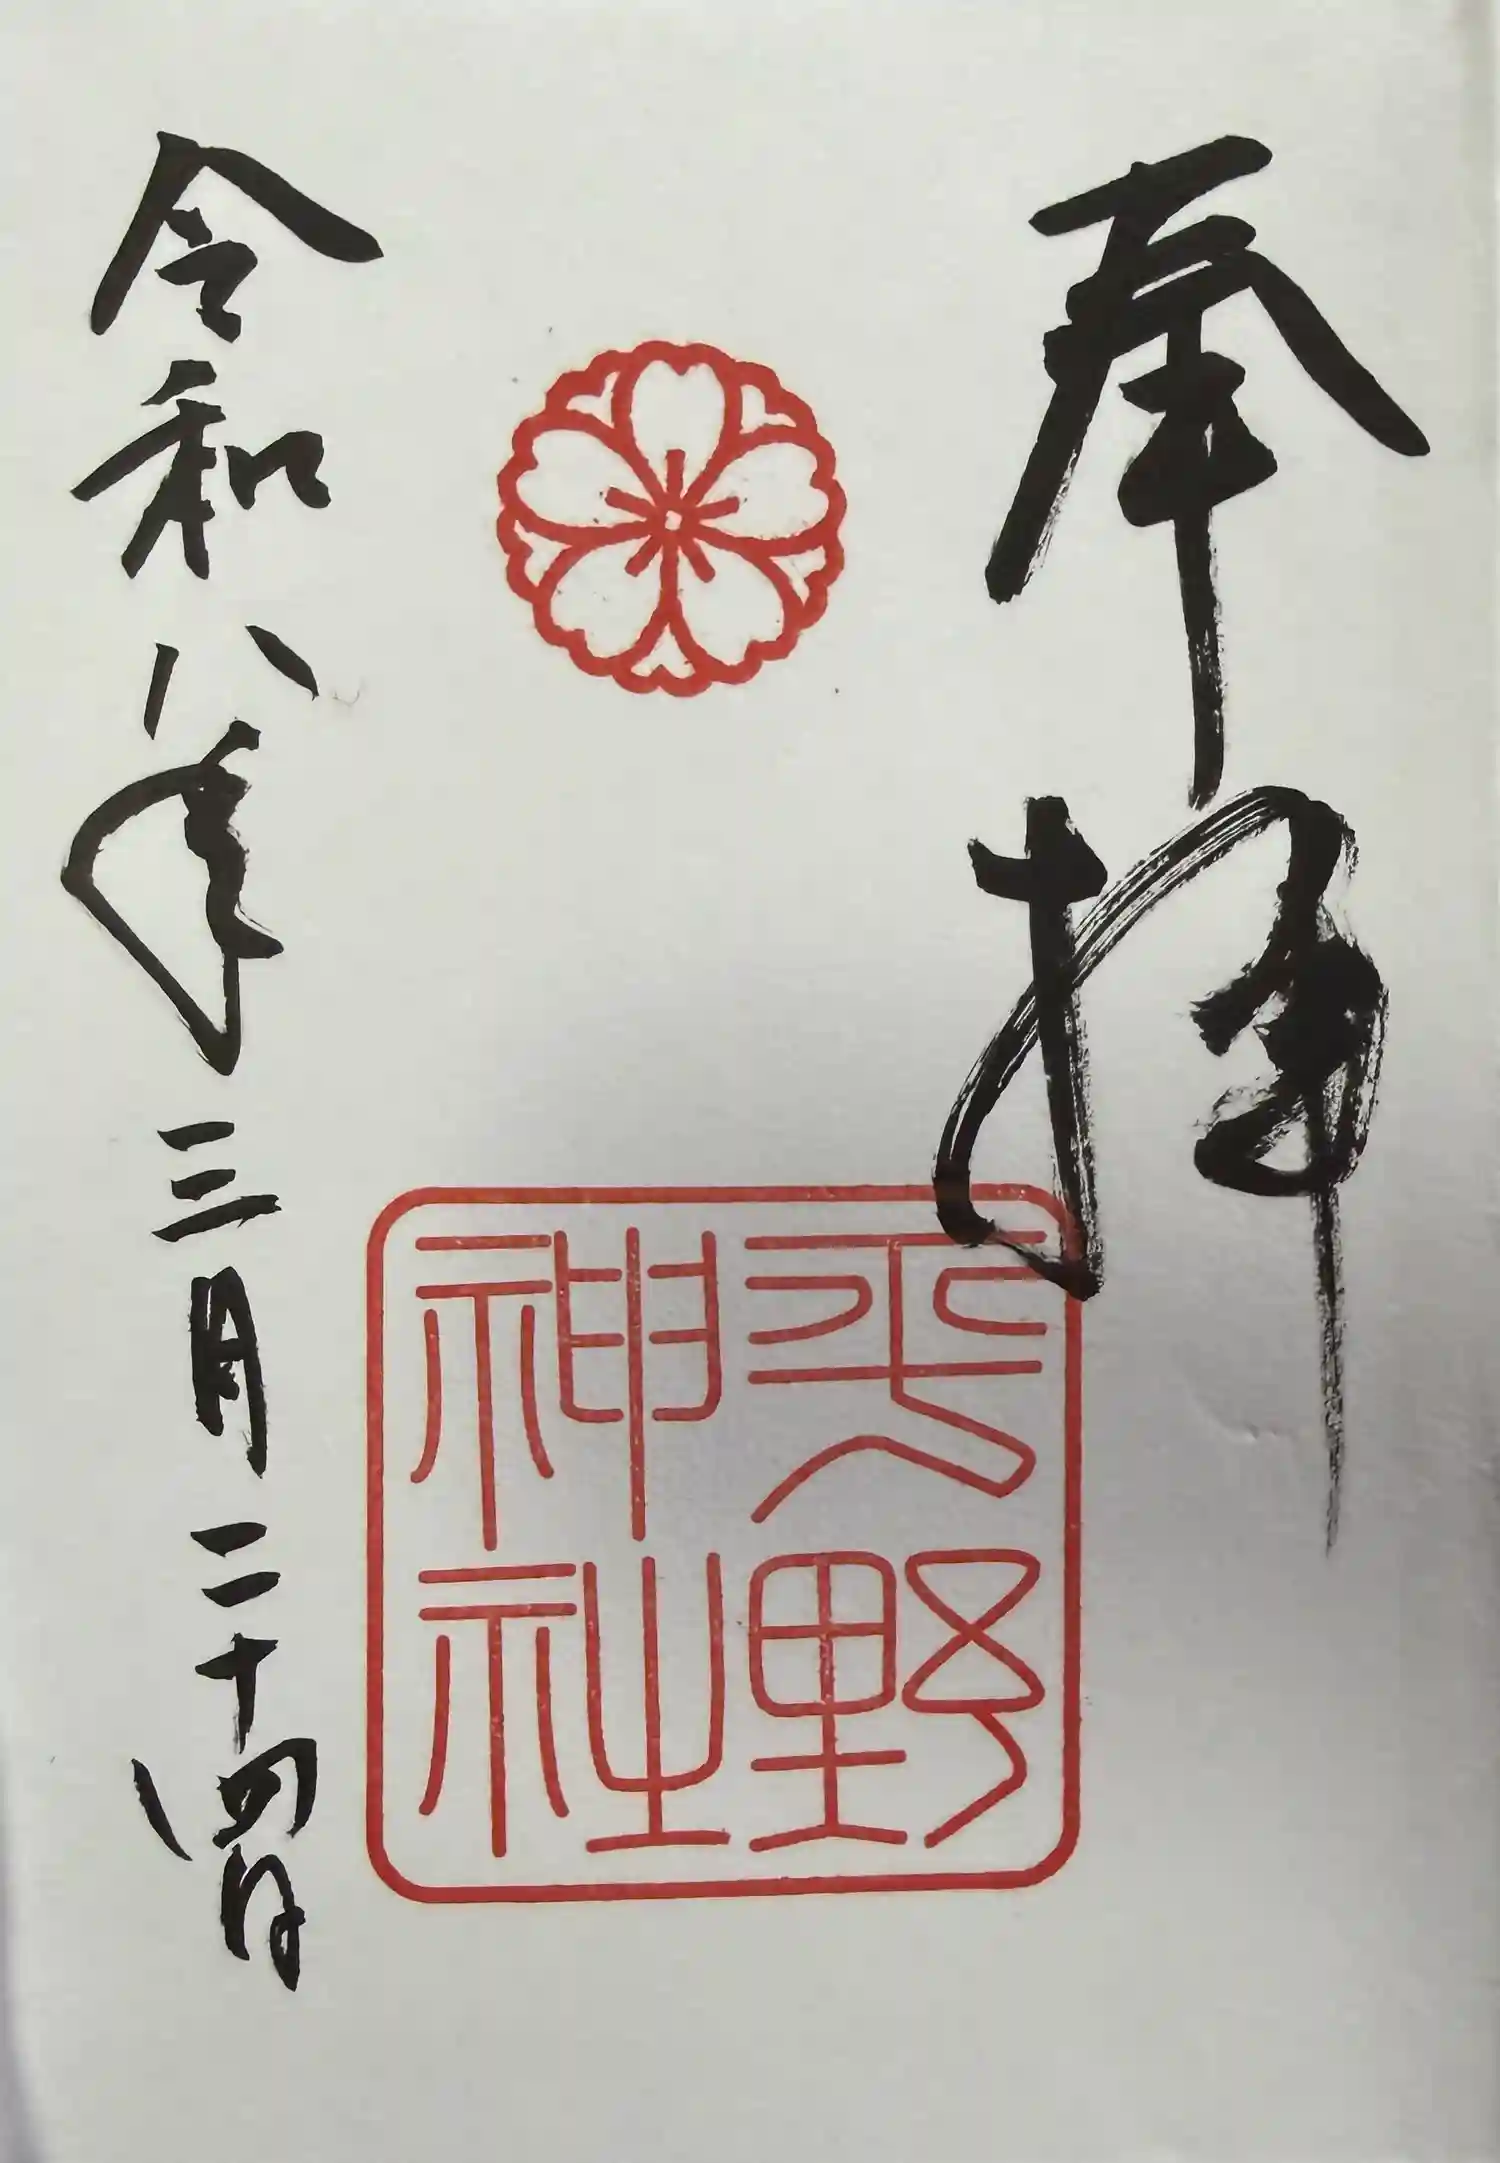 奉拝
平野神社
令和八年三月二十四日